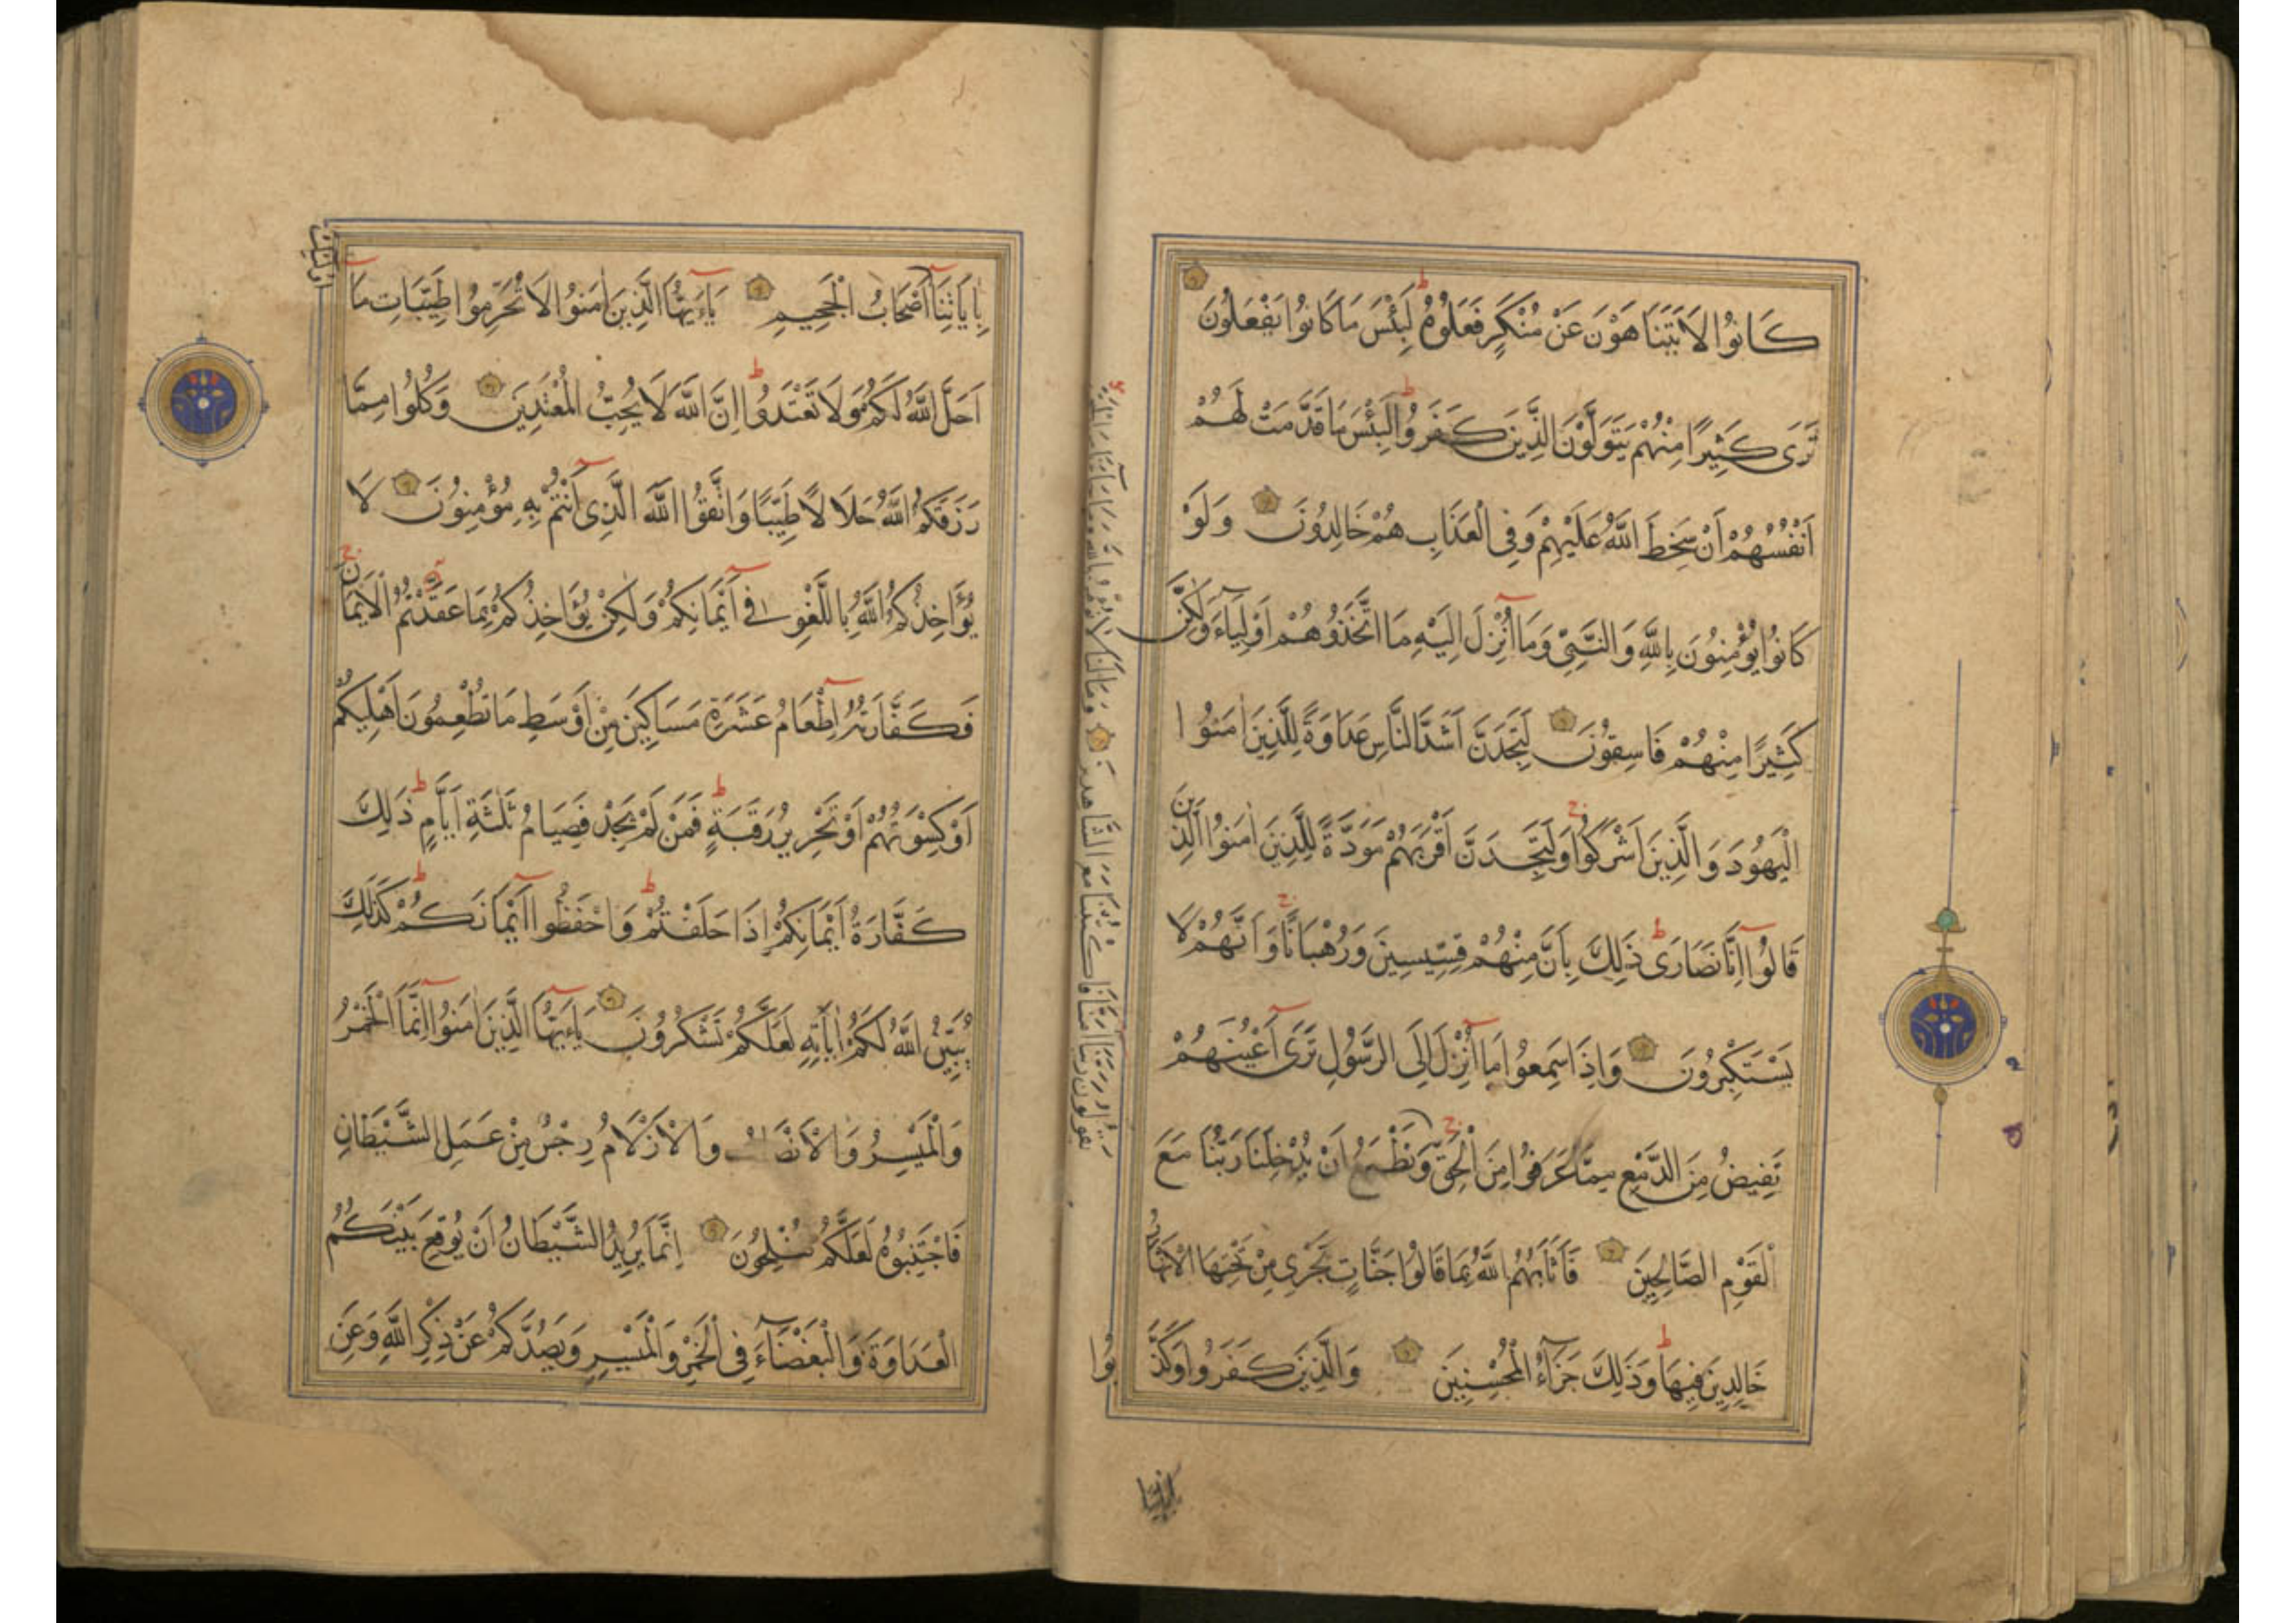 كَانُوا لَا يَتَنَاهَوْنَ عَنْ مُنْكَرٍ فَعَلُوهُ ط لَبِئْسَ مَا كَانُوا يَفْعَلُونَ
تَرَى كَثِيرًا مِنْهُمْ يَتَوَلَّوْنَ الَّذِينَ كَفَرُوا ط لَبِئْسَ مَا قَدَّمَتْ لَهُمْ
اَنْفُسُهُمْ اَنْ سَخِطَ اللَّهُ عَلَيْهِمْ وَفِي الْعَذَابِ هُمْ خَالِدُونَ وَلَوْ
كَانُوا يُؤْمِنُونَ بِاللَّهِ وَالنَّبِيِّ وَمَا اُنْزِلَ اِلَيْهِ مَا اتَّخَذُوهُمْ اَوْلِيَاءَ وَلٰكِنَّ
كَثِيرًا مِنْهُمْ فَاسِقُونَ لَتَجِدَنَّ اَشَدَّ النَّاسِ عَدَاوَةً لِلَّذِينَ اٰمَنُوا
الْيَهُودَ وَالَّذِينَ اَشْرَكُوا ج وَلَتَجِدَنَّ اَقْرَبَهُمْ مَوَدَّةً لِلَّذِينَ اٰمَنُوا الَّذِينَ
قَالُوا اِنَّا نَصَارَى ط ذَلِكَ بِاَنَّ مِنْهُمْ قِسِّيسِينَ وَرُهْبَانًا ج وَاَنَّهُمْ لَا
يَسْتَكْبِرُونَ وَاِذَا سَمِعُوا مَا اُنْزِلَ اِلَى الرَّسُولِ تَرَى اَعْيُنَهُمْ
تَفِيضُ مِنَ الدَّمْعِ مِمَّا عَرَفُوا مِنَ الْحَقِّ ج وَنَطْمَعُ اَنْ يُدْخِلَنَا رَبُّنَا مَعَ
الْقَوْمِ الصَّالِحِينَ فَاَثَابَهُمُ اللَّهُ بِمَا قَالُوا جَنَّاتٍ تَجْرِي مِنْ تَحْتِهَا الْاَنْهَارُ
خَالِدِينَ فِيهَا ط وَذَلِكَ جَزَاءُ الْمُحْسِنِينَ وَالَّذِينَ كَفَرُوا وَكَذَّ
بُوا
يَقُولُونَ رَبَّنَا اٰمَنَّا فَاكْتُبْنَا مَعَ الشَّاهِدِينَ وَمَا لَنَا لَا نُؤْمِنُ بِاللَّهِ وَمَا
بِاٰيَاتِنَا
بِاٰيَاتِنَا اَصْحَابُ الْجَحِيمِ يَاءَيُّهَا الَّذِينَ اٰمَنُوا لَا تُحَرِّمُوا طَيِّبَاتِ مَا
اَحَلَّ اللَّهُ لَكُمْ وَلَا تَعْتَدُوا ط اِنَّ اللَّهَ لَا يُحِبُّ الْمُعْتَدِينَ وَكُلُوا مِمَّا
رَزَقَكُمُ اللَّهُ حَلَالًا طَيِّبًا وَاتَّقُوا اللَّهَ الَّذِي اَنْتُمْ بِهِ مُؤْمِنُونَ لَا
يُؤَاخِذُكُمُ اللَّهُ بِاللَّغْوِ فِي اَيْمَانِكُمْ وَلٰكِنْ يُؤَاخِذُكُمْ بِمَا عَقَّدْتُمُ الْاَيْمَانَ ج
فَكَفَّارَتُهُ اِطْعَامُ عَشَرَةِ مَسَاكِينَ مِنْ اَوْسَطِ مَا تُطْعِمُونَ اَهْلِيكُمْ
اَوْ كِسْوَتُهُمْ اَوْ تَحْرِيرُ رَقَبَةٍ ط فَمَنْ لَمْ يَجِدْ فَصِيَامُ ثَلٰثَةِ اَيَّامٍ ط ذَلِكَ
كَفَّارَةُ اَيْمَانِكُمْ اِذَا حَلَفْتُمْ ط وَاحْفَظُوا اَيْمَانَكُمْ ط كَذَلِكَ
يُبَيِّنُ اللَّهُ لَكُمْ اٰيَاتِهِ لَعَلَّكُمْ تَشْكُرُونَ يَاءَيُّهَا الَّذِينَ اٰمَنُوا اِنَّمَا الْخَمْرُ
وَالْمَيْسِرُ وَالْاَنْصَابُ وَالْاَزْلَامُ رِجْسٌ مِنْ عَمَلِ الشَّيْطَانِ
فَاجْتَنِبُوهُ لَعَلَّكُمْ تُفْلِحُونَ اِنَّمَا يُرِيدُ الشَّيْطَانُ اَنْ يُوقِعَ بَيْنَكُمُ
الْعَدَاوَةَ وَالْبَغْضَاءَ فِي الْخَمْرِ وَالْمَيْسِرِ وَيَصُدَّكُمْ عَنْ ذِكْرِ اللَّهِ وَعَنِ